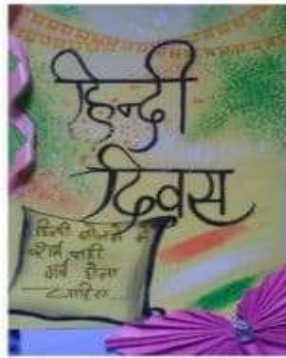 हिन्दी
दिवस
हिन्दी बोलने में
शर्म नहीं
गर्व होना
चाहिए